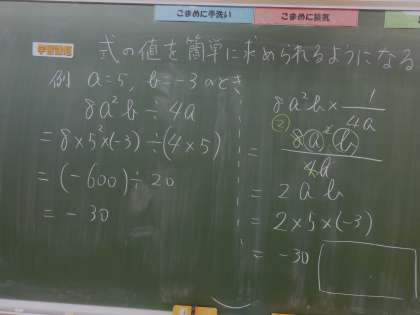 こまめに手洗い
こまめに換気
学習課題 式の値を簡単に求められるようになる
例 a=5, b=-3のとき
8a²b÷4a
=8×5²×(-3)÷(4×5)
=(-600)÷20
=-30
8a²b×1/4a
② = 8a²b/4a
=2ab
=2×5×(-3)
=-30